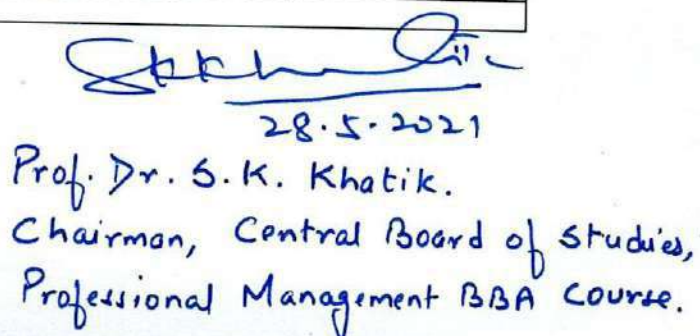 28.5.2021
Prof. Dr. S. K. Khatik.
Chairman, Central Board of Studies,
Professional Management BBA Course.